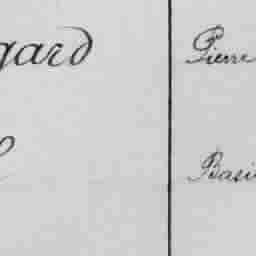 gard Pierre
Basi